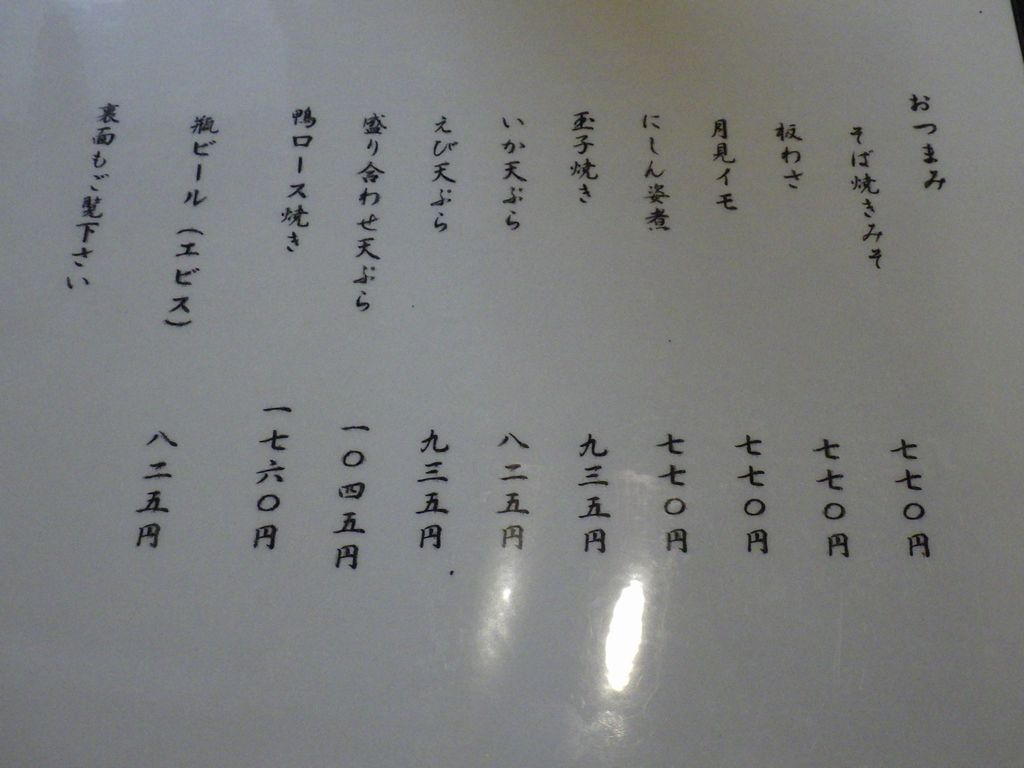 おつまみ
そば焼きみそ 七七〇円
板わさ 七七〇円
月見イモ 七七〇円
にしん姿煮 七七〇円
玉子焼き 九三五円
いか天ぷら 八二五円
えび天ぷら 九三五円
盛り合わせ天ぷら 一〇四五円
鴨ロース焼き 一七六〇円
瓶ビール（エビス） 八二五円
裏面もご覧下さい